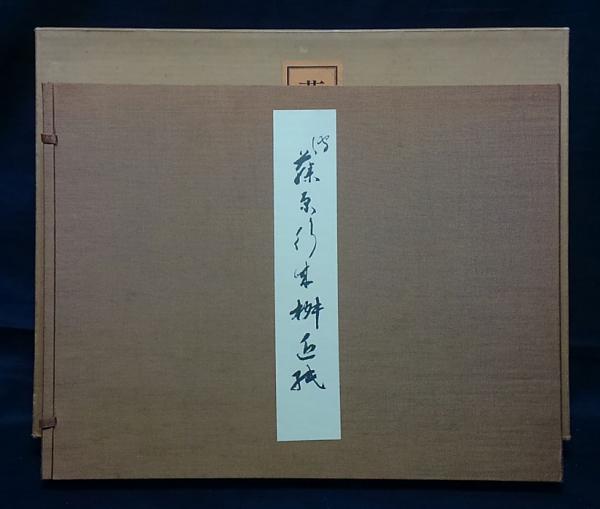 傳藤原行成桝色紙